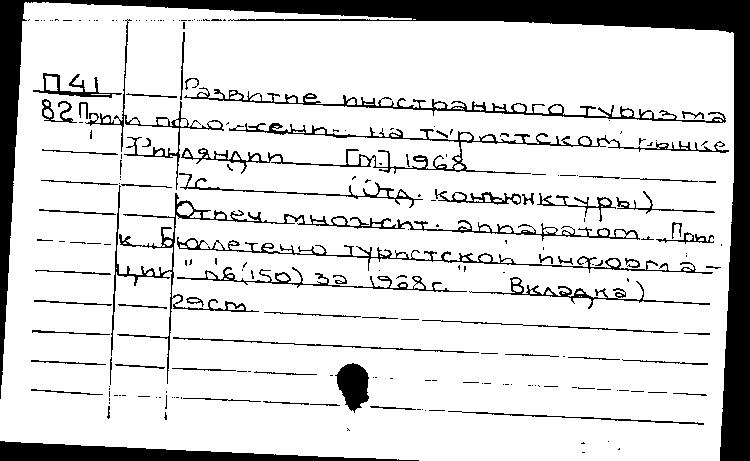 П41 Развитие иностранного туризма
82 Прил и положение на туристском рынке
Финляндии [М.], 1968
7с. (Отд. конъюнктуры)
Отпеч. множит. аппаратом. „Прил.
к „Бюллетеню туристской информа-
ции" №6(150) за 1968г." Вкладка)
29см